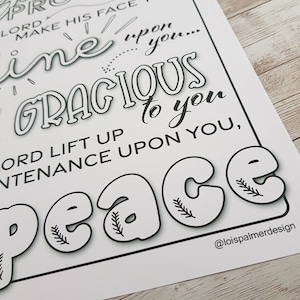 LORD MAKE HIS FACE
upon
you...
GRACIOUS
to you
ORD LIFT UP
NTENANCE UPON YOU,
peace
@loispalmerdesign